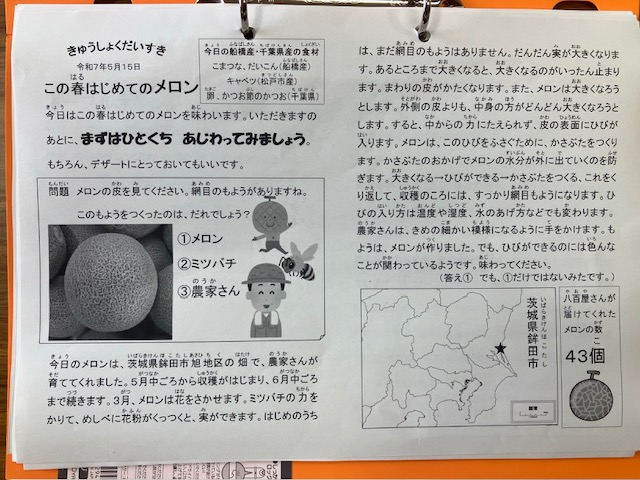 きゅうしょくだいすき
令和7年5月15日
この春はじめてのメロン
今日の船橋産・千葉県産の食材
こまつな、だいこん(船橋産)
キャベツ(松戸市産)
卵、かつお節のかつお(千葉県)
今日はこの春はじめてのメロンを味わいます。いただきますの
あとに、まずはひとくち あじわってみましょう。
もちろん、デザートにとっておいてもいいです。
問題 メロンの皮を見てください。網目のもようがありますね。
このもようをつくったのは、だれでしょう?
①メロン
②ミツバチ
③農家さん
今日のメロンは、茨城県鉾田市旭地区の畑で、農家さんが
育ててくれました。5月中ごろから収穫がはじまり、6月中ごろ
まで続きます。3月、メロンは花をさかせます。ミツバチの力を
かりて、めしべに花粉がくっつくと、実ができます。はじめのうち
は、まだ網目のもようはありません。だんだん実が大きくなりま
す。あるところまで大きくなると、大きくなるのがいったん止まり
ます。まわりの皮がかたくなります。また、メロンは大きくなろう
とします。外側の皮よりも、中身の方がどんどん大きくなろうと
します。すると、中からの力にたえられず、皮の表面にひびが
入ります。メロンは、このひびをふさぐために、かさぶたをつくり
ます。かさぶたのおかげでメロンの水分が外に出ていくのを防
ぎます。大きくなる→ひびができる→かさぶたをつくる、これをく
り返して、収穫のころには、すっかり網目もようになります。ひ
びの入り方は温度や湿度、水のあげ方などでも変わります。
農家さんは、きめの細かい模様になるように手をかけます。も
ようは、メロンが作りました。でも、ひびができるのには色んな
ことが関わっているようです。味わってください。
(答え① でも、①だけではないみたです。)
茨城県鉾田市
八百屋さんが
届けてくれた
メロンの数
43個